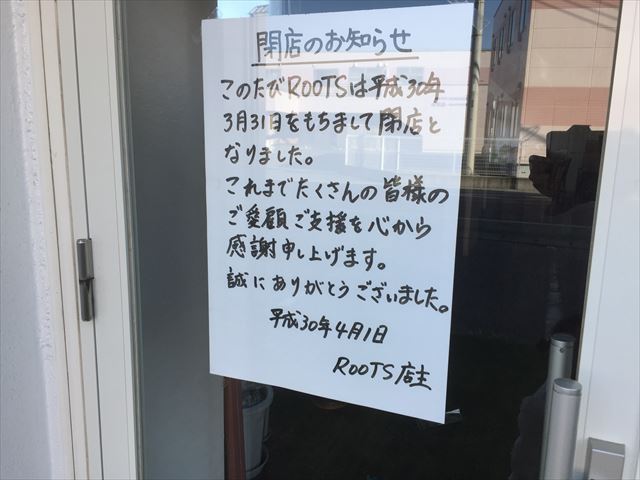 閉店のお知らせ
このたびROOTSは平成30年
3月31日をもちまして閉店と
なりました。
これまでたくさんの皆様の
ご愛顧ご支援を心から
感謝申し上げます。
誠にありがとうございました。
平成30年4月1日
ROOTS店主